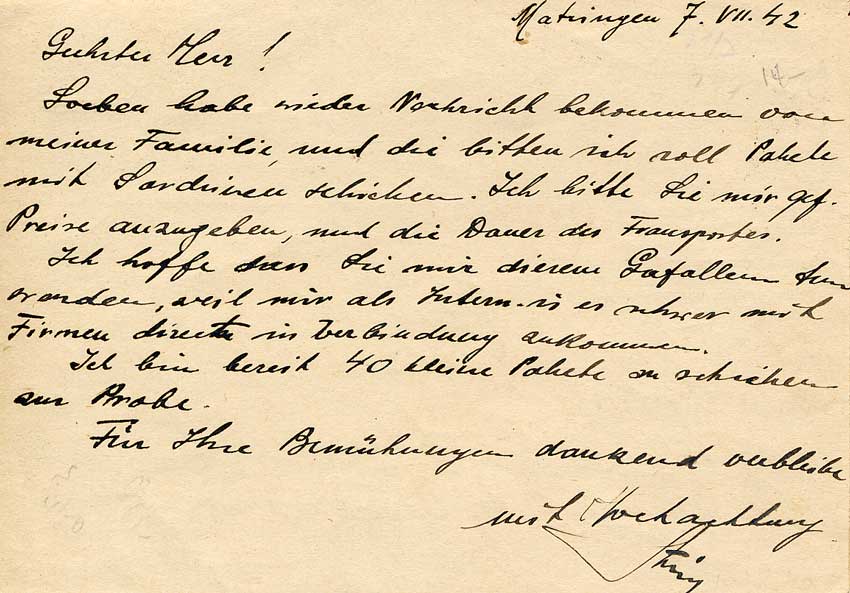 Matzingen 7. VII. 42
14-
Geehrter Herr!
Soeben habe wieder Nachricht bekommen von
meiner Familie, und die bitten ich soll Pakete
mit Sardinen schicken. Ich bitte Sie mir gef.
Preise anzugeben, und die Dauer des Transportes.
Ich hoffe dass Sie mir diesen Gefallen tun
werden, weil mir als Intern. is es schwer mit
Firmen direct in Verbindung zukommen.
Ich bin bereit 40 kleine Pakete zu schicken
zur Probe.
Für Ihre Bemühungen dankend verbleibe
mit Hochachtung